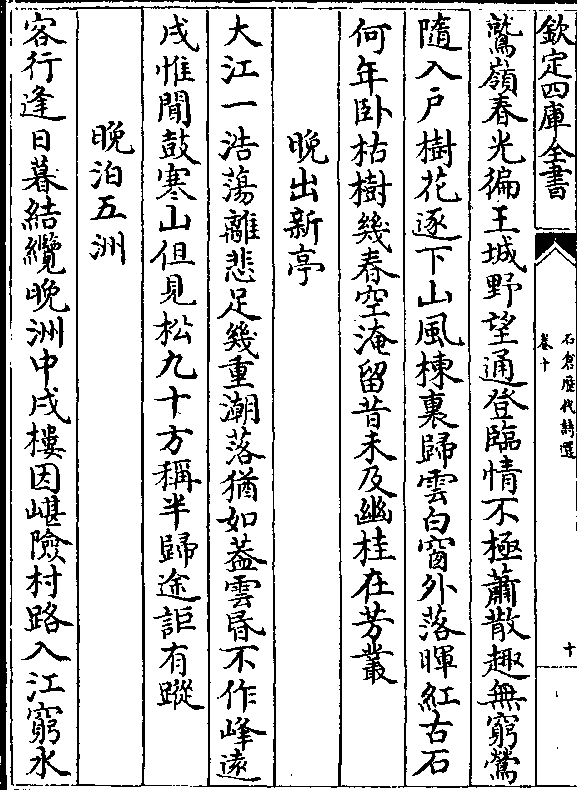 欽定四庫全書
石倉歷代詩選
卷十
十
鷲嶺春光徧王城野望通登臨情不極蕭散趣無窮鶯
隨入戶樹花逐下山風棟裏歸雲白窗外落暉紅古石
何年卧枯樹幾春空淹留昔未及幽桂在芳叢
晚出新亭
大江一浩蕩離悲足幾重潮落猶如葢雲昏不作峰遠
戍惟聞鼓寒山但見松九十方稱半歸途詎有蹤
晚泊五洲
客行逢日暮結纜晚洲中戍樓因嵁險村路入江窮水